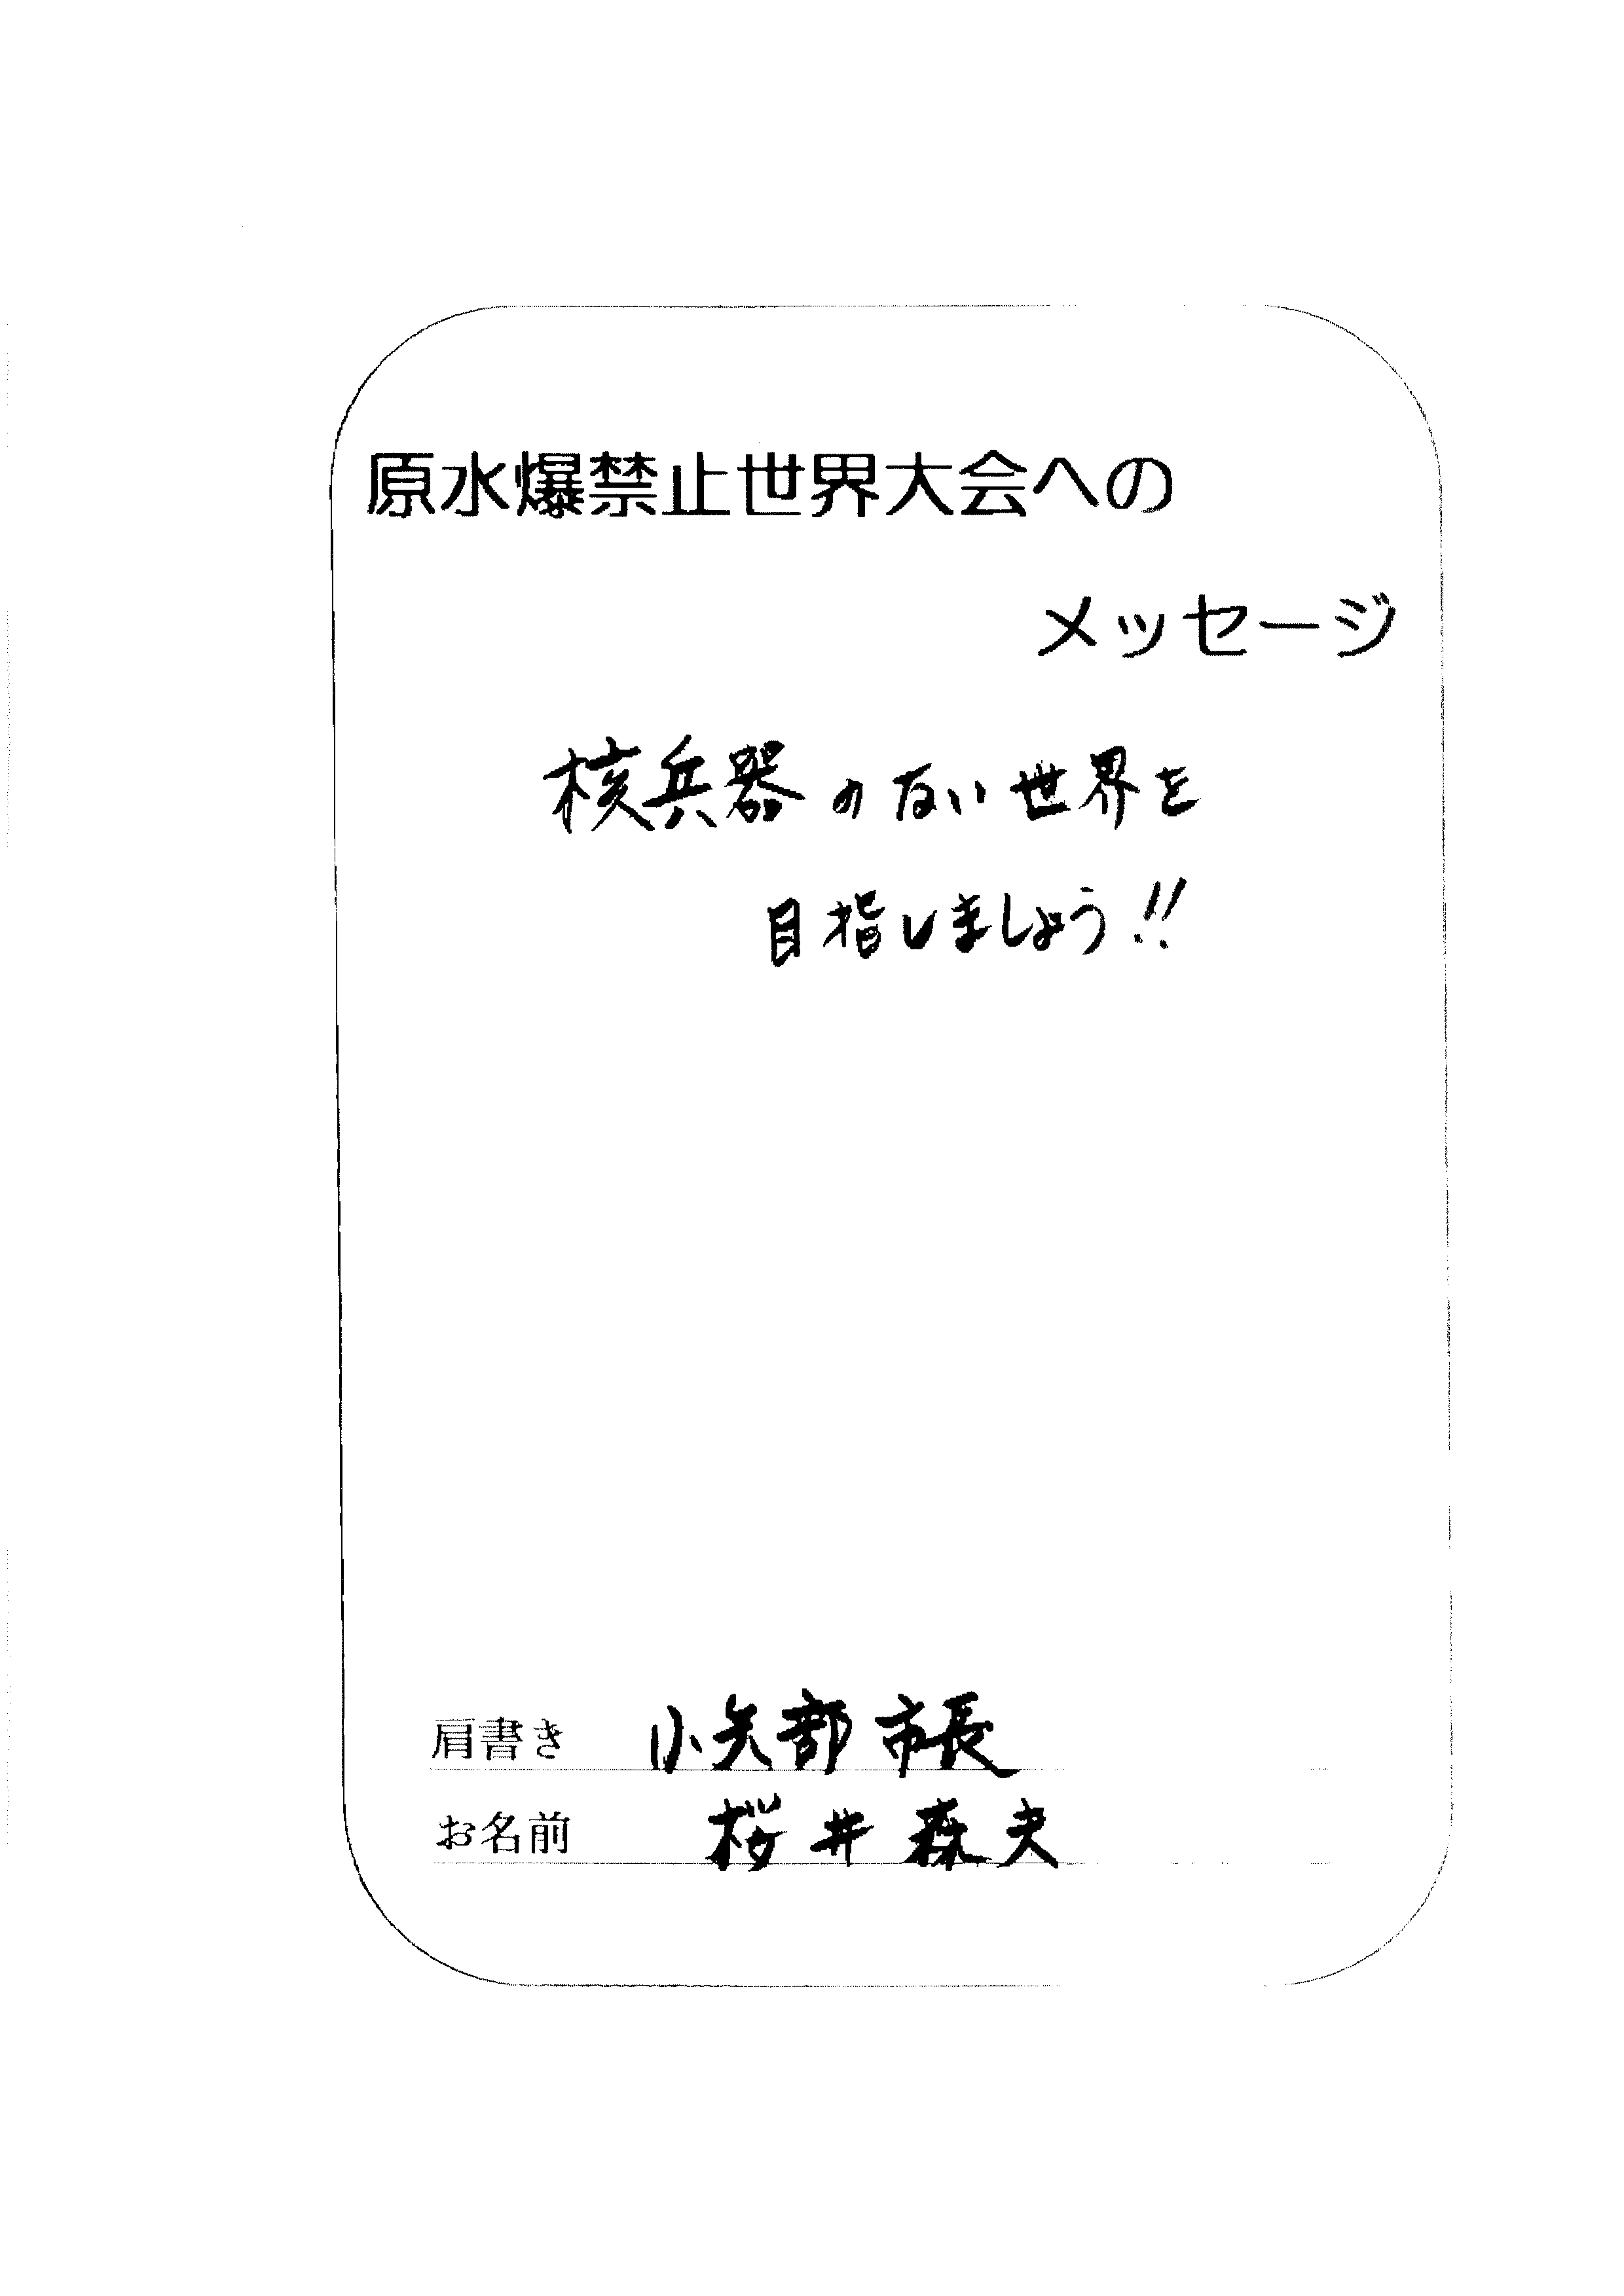 原水爆禁止世界大会への
メッセージ
核兵器のない世界を
目指しましょう!!
肩書き 小矢部市長
お名前 桜井森夫